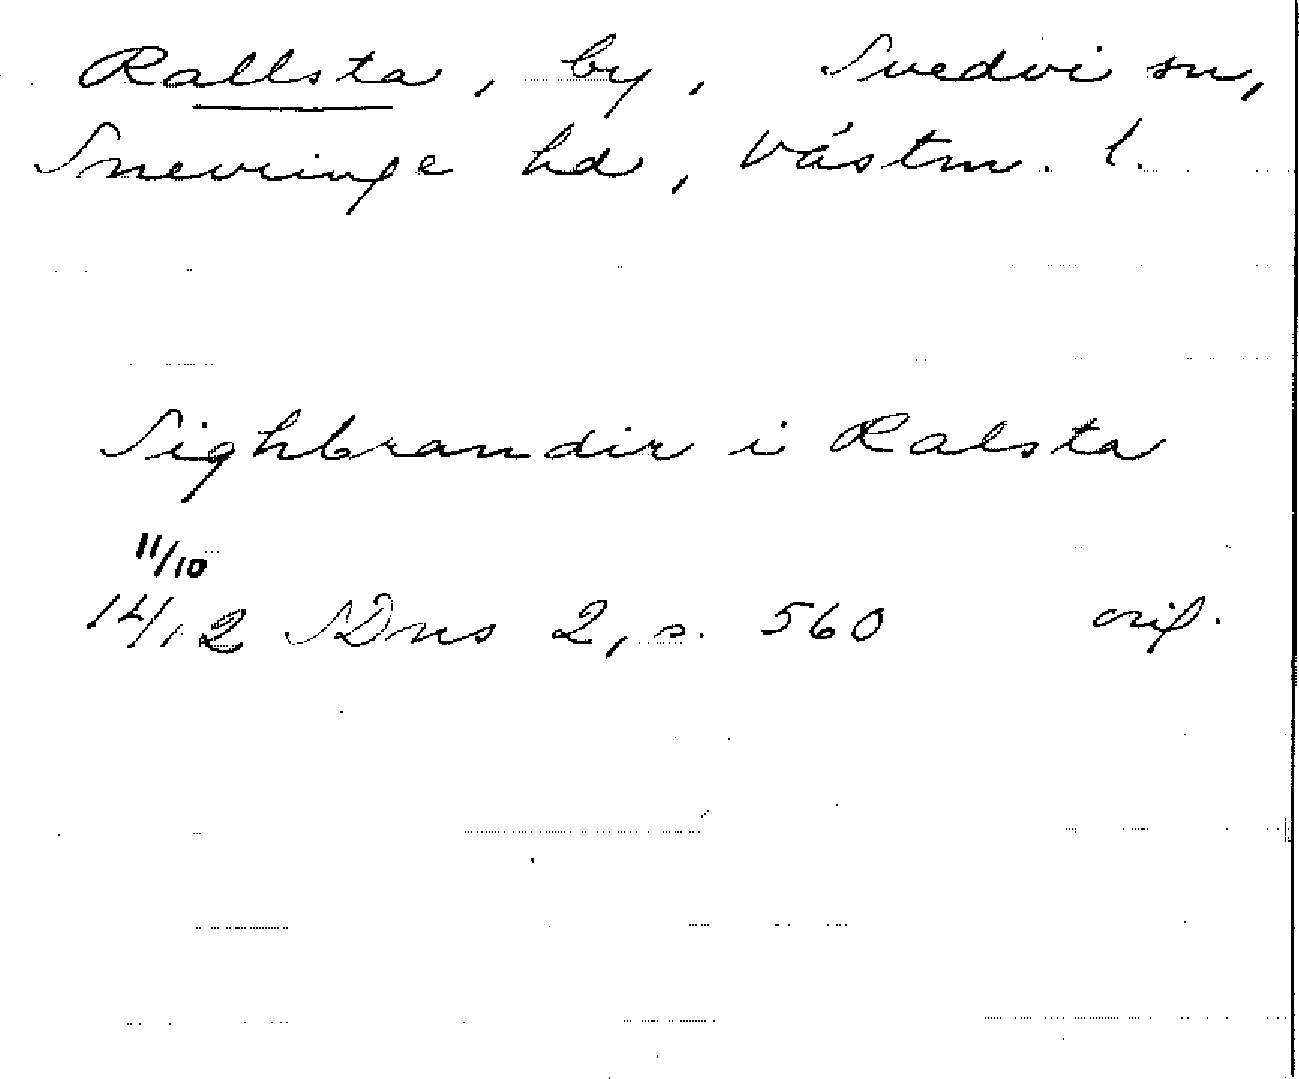 Rallsta, by, Svedvi sn,
Snevringe hd, Västm. l.
Sighbrandir i Ralsta
11/10
1412 SDns 2, s. 560 orig.